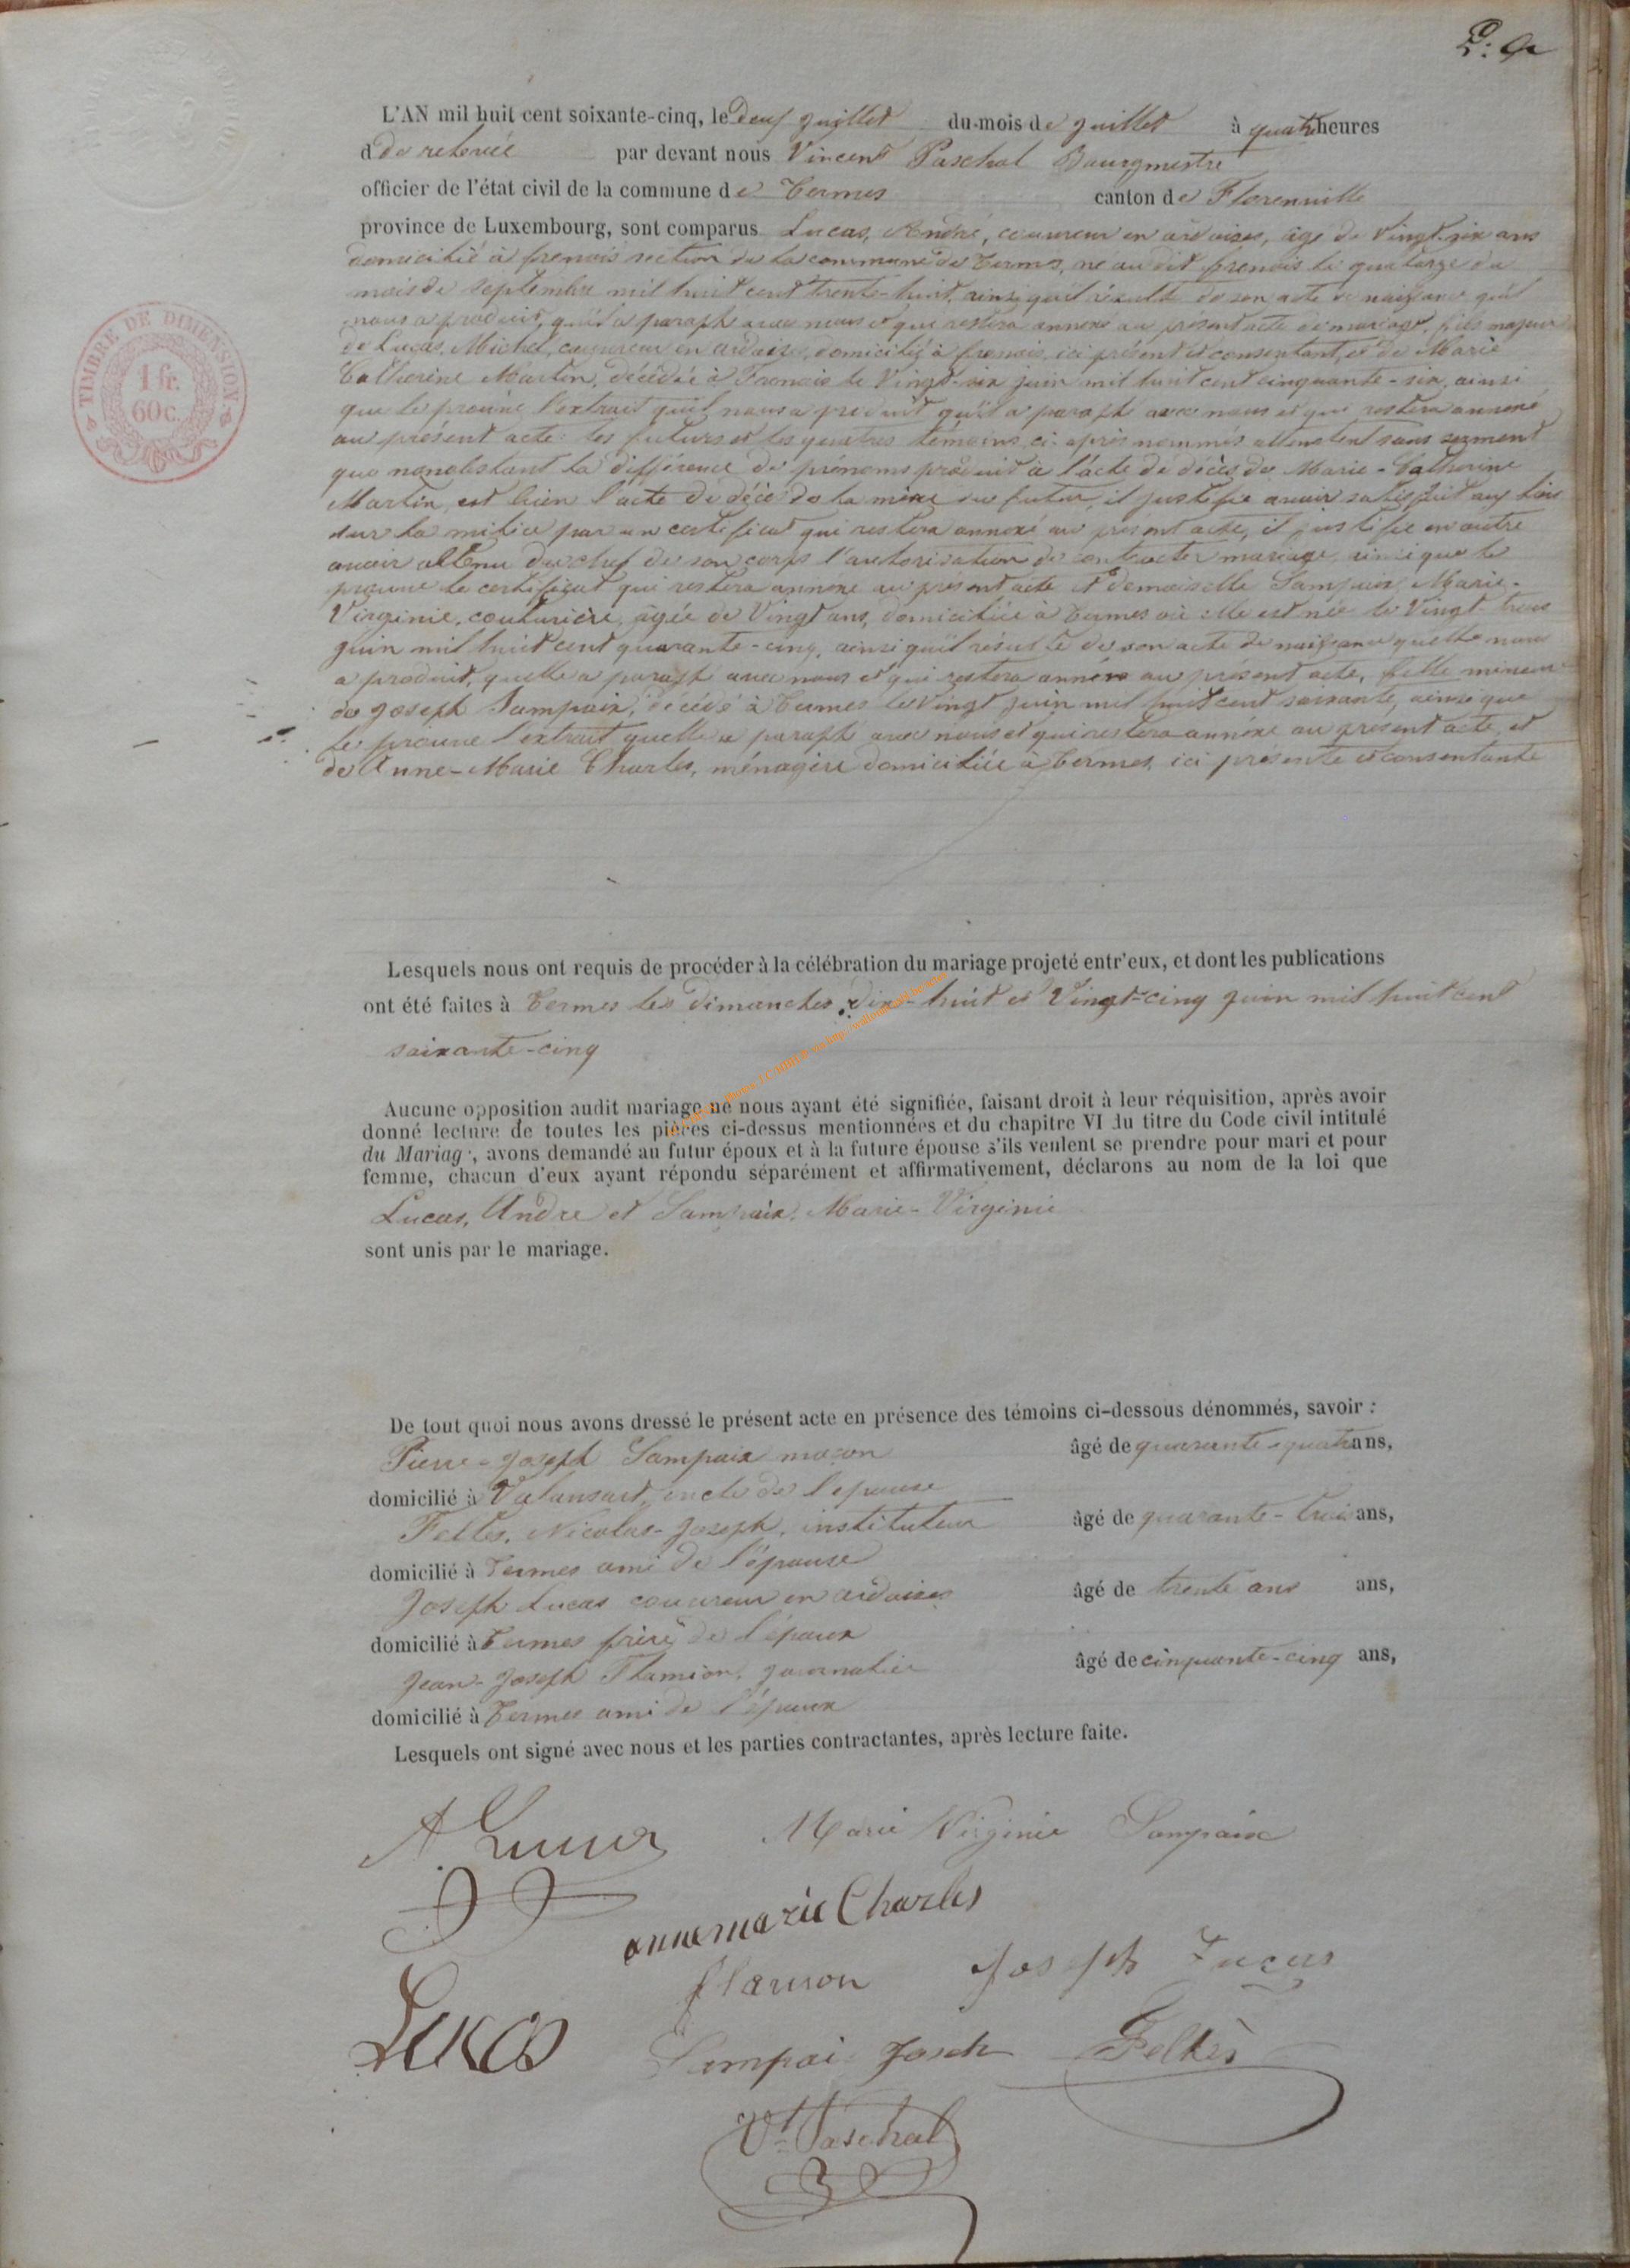 L'AN mil huit cent soixante-cinq, le deux juillet du mois de juillet à quatre heures
d de relevée par devant nous Vincent Paschal Bourgmestre
officier de l'état civil de la commune de Termes canton de Florenville
province de Luxembourg, sont comparus Lucas, André, couvreur en ardoises, âgé de Vingt-six ans
domicilié à frenois section de la commune de Termes, né au dit frenois le quatorze du
mois de Septembre mil huit cent trente-huit, ainsi qu'il résulte de son acte de naissance qu'il
nous a produit, qu'il a paraphé avec nous et qui restera annexé au présent acte de mariage, fils majeur
de Lucas, Michel, couvreur en ardoises, domicilié à frenois, ici présent et consentant, et de Marie
Catherine Martin, décédée à Frenois le Vingt-six juin mil huit cent cinquante-six, ainsi
que le prouve l'extrait qu'il nous a produit qu'il a paraphé avec nous et qui restera annexé
au présent acte: les futurs et les quatres témoins ci-après nommés attestent sous serment
que nonobstant la différence de prénoms produit à l'acte de décès de Marie-Catherine
Martin, est bien l'acte de décès de la mère du futur, il justifie avoir satisfait aux lois
sur la milice par un certificat qui restera annexé au présent acte, il justifie en outre
avoir obtenu du chef de son corps l'autorisation de contracter mariage ainsi que le
prouve le certificat qui restera annexé au présent acte et demoiselle Sampaix, Marie-
Virginie, couturière, âgée de Vingt ans, domiciliée à Termes où elle est née le Vingt-trois
juin mil huit cent quarante-cinq, ainsi qu'il résulte de son acte de naissance quelle nous
a produit, quelle a paraphé avec nous et qui restera annéxé au présent acte, fille mineure
de Joseph Sampaix, décédé à Termes le Vingt juin mil huit cent soixante, ainsi que
le prouve l'extrait quelle a paraphé avec nous et qui restera annéxé au présent acte, et
de Anne-Marie Charles, ménagère domiciliée à Termes, ici présente et consentante
TIMBRE DE DIMENSION
1 fr.
60c.
Lesquels nous ont requis de procéder à la célébration du mariage projeté entr'eux, et dont les publications
ont été faites à Termes les dimanches dix-huit et Vingt-cinq juin mil huit cent
soixante-cinq
Aucune opposition audit mariage ne nous ayant été signifiée, faisant droit à leur réquisition, après avoir
donné lecture de toutes les pièces ci-dessus mentionnées et du chapitre VI du titre du Code civil intitulé
du Mariag, avons demandé au futur époux et à la future épouse s'ils veulent se prendre pour mari et pour
femme, chacun d'eux ayant répondu séparément et affirmativement, déclarons au nom de la loi que
Lucas, André et Sampaix, Marie-Virginie
sont unis par le mariage.
De tout quoi nous avons dressé le présent acte en présence des témoins ci-dessous dénommés, savoir :
Pierre-Joseph Sampaix maçon âgé de quarante-quatre ans,
domicilié à Valansart, oncle de l'épouse
Feltes, Nicolas-Joseph, instituteur âgé de quarante-trois ans,
domicilié à Termes ami de l'épouse
Joseph Lucas couvreur en ardoises âgé de trente ans ans,
domicilié à Termes frère de l'époux
Jean-Joseph Flamion, journalier âgé de cinquante-cinq ans,
domicilié à Termes ami de l'époux
Lesquels ont signé avec nous et les parties contractantes, après lecture faite.
A Lucas Marie Virginie Sampaix
anne marie Charles
flamion Joseph Lucas
Lucas Sampai Joseh Feltès
Vt Paschal